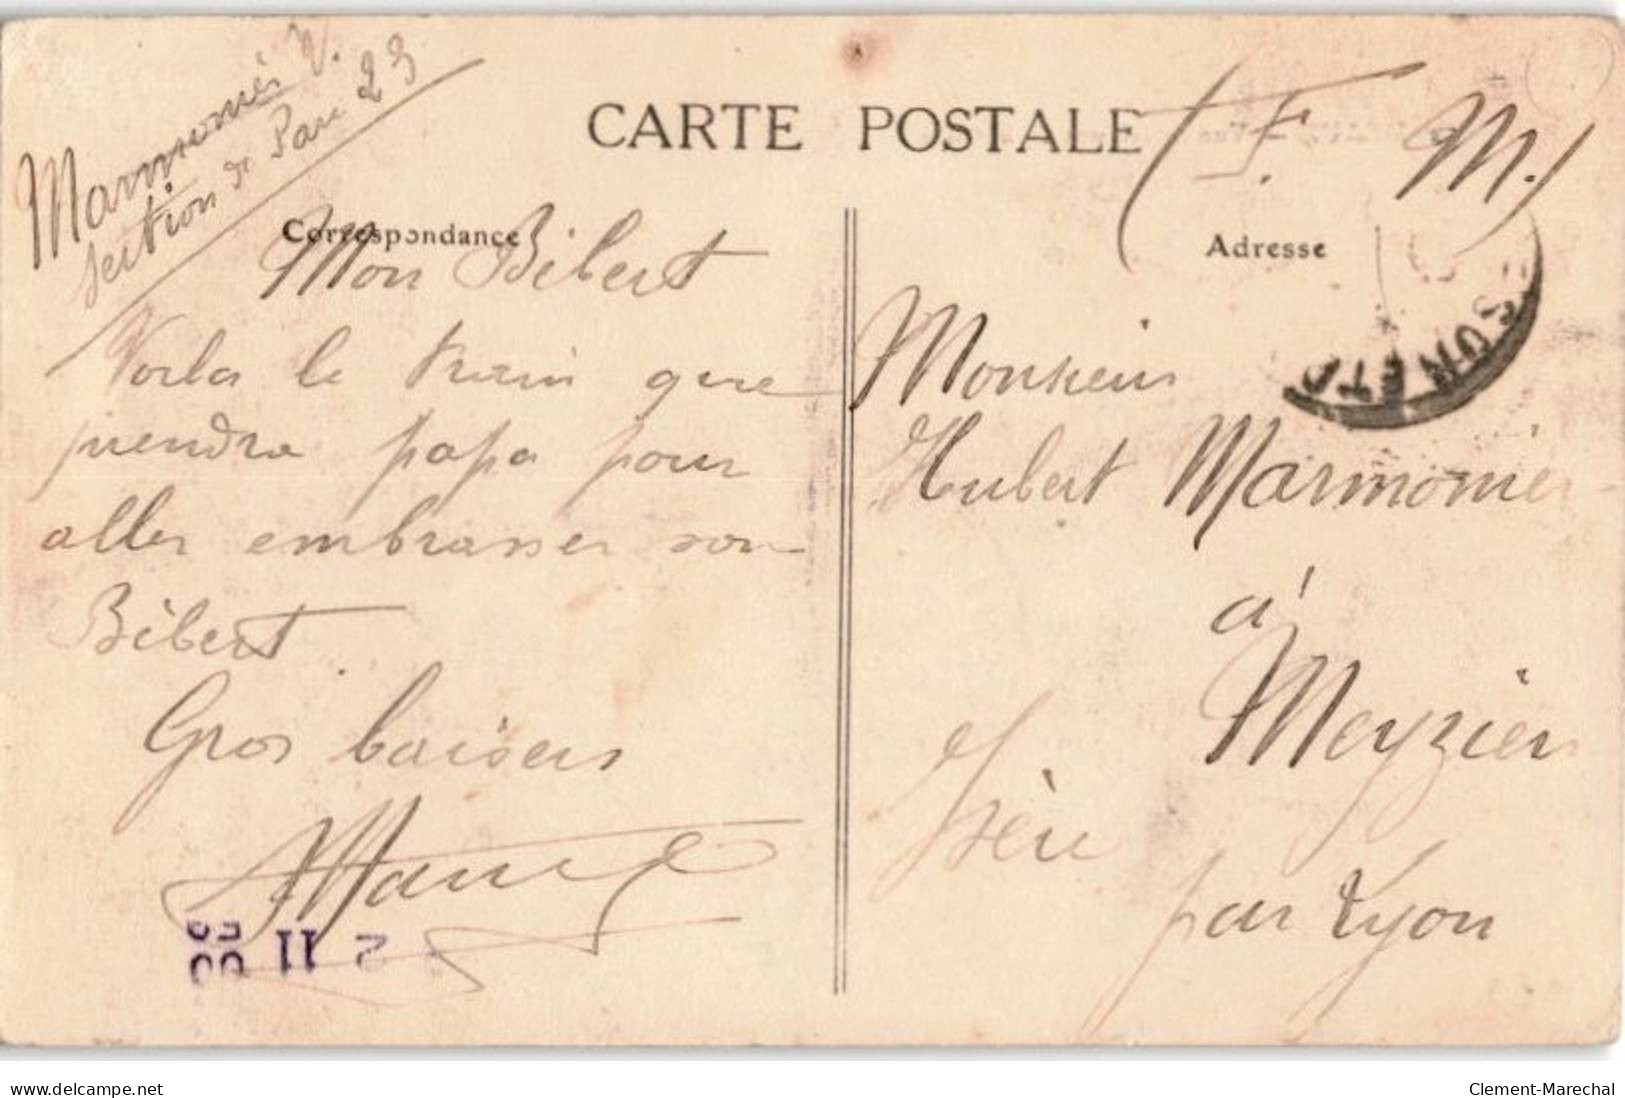 Marmonier V.
section de Parc 23
CARTE POSTALE
(F. M.)
Correspondance
Adresse
Mon Bébert
Voila le train que
prendra papa pour
aller embrasser son
Bébert.
Gros baisers
2 11
Monsieur
Hubert Marmonier
à
Meyzieu
Isère
par Lyon
www.delcampe.net
Clement-Marechal